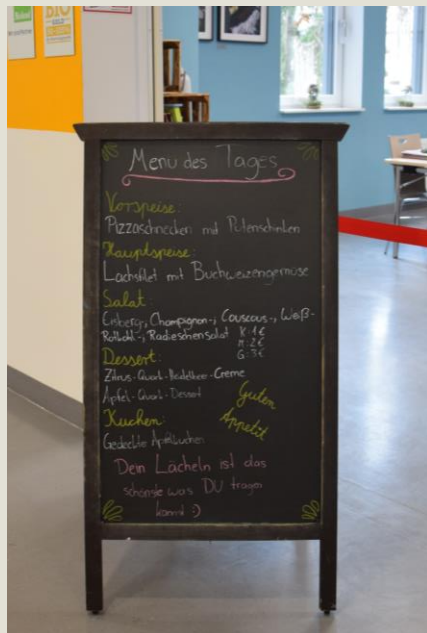 BIO
Menü des Tages
Vorspeise:
Pizzaschnecken mit Putenschinken
Hauptspeise:
Lachsfilet mit Buchweizengemüse
Salat:
Eisberg-, Champignon-, Couscous-, Weiß-
Rotkohl-, Radieschensalat K: 1€
M: 2€
G: 3€
Dessert:
Zitrus-Quark-Heidelbeer-Creme
Apfel-Quark-Dessert
Guten
Appetit
Kuchen:
Gedeckter Apfelkuchen
Dein Lächeln ist das
schönste was DU tragen
kannst :)